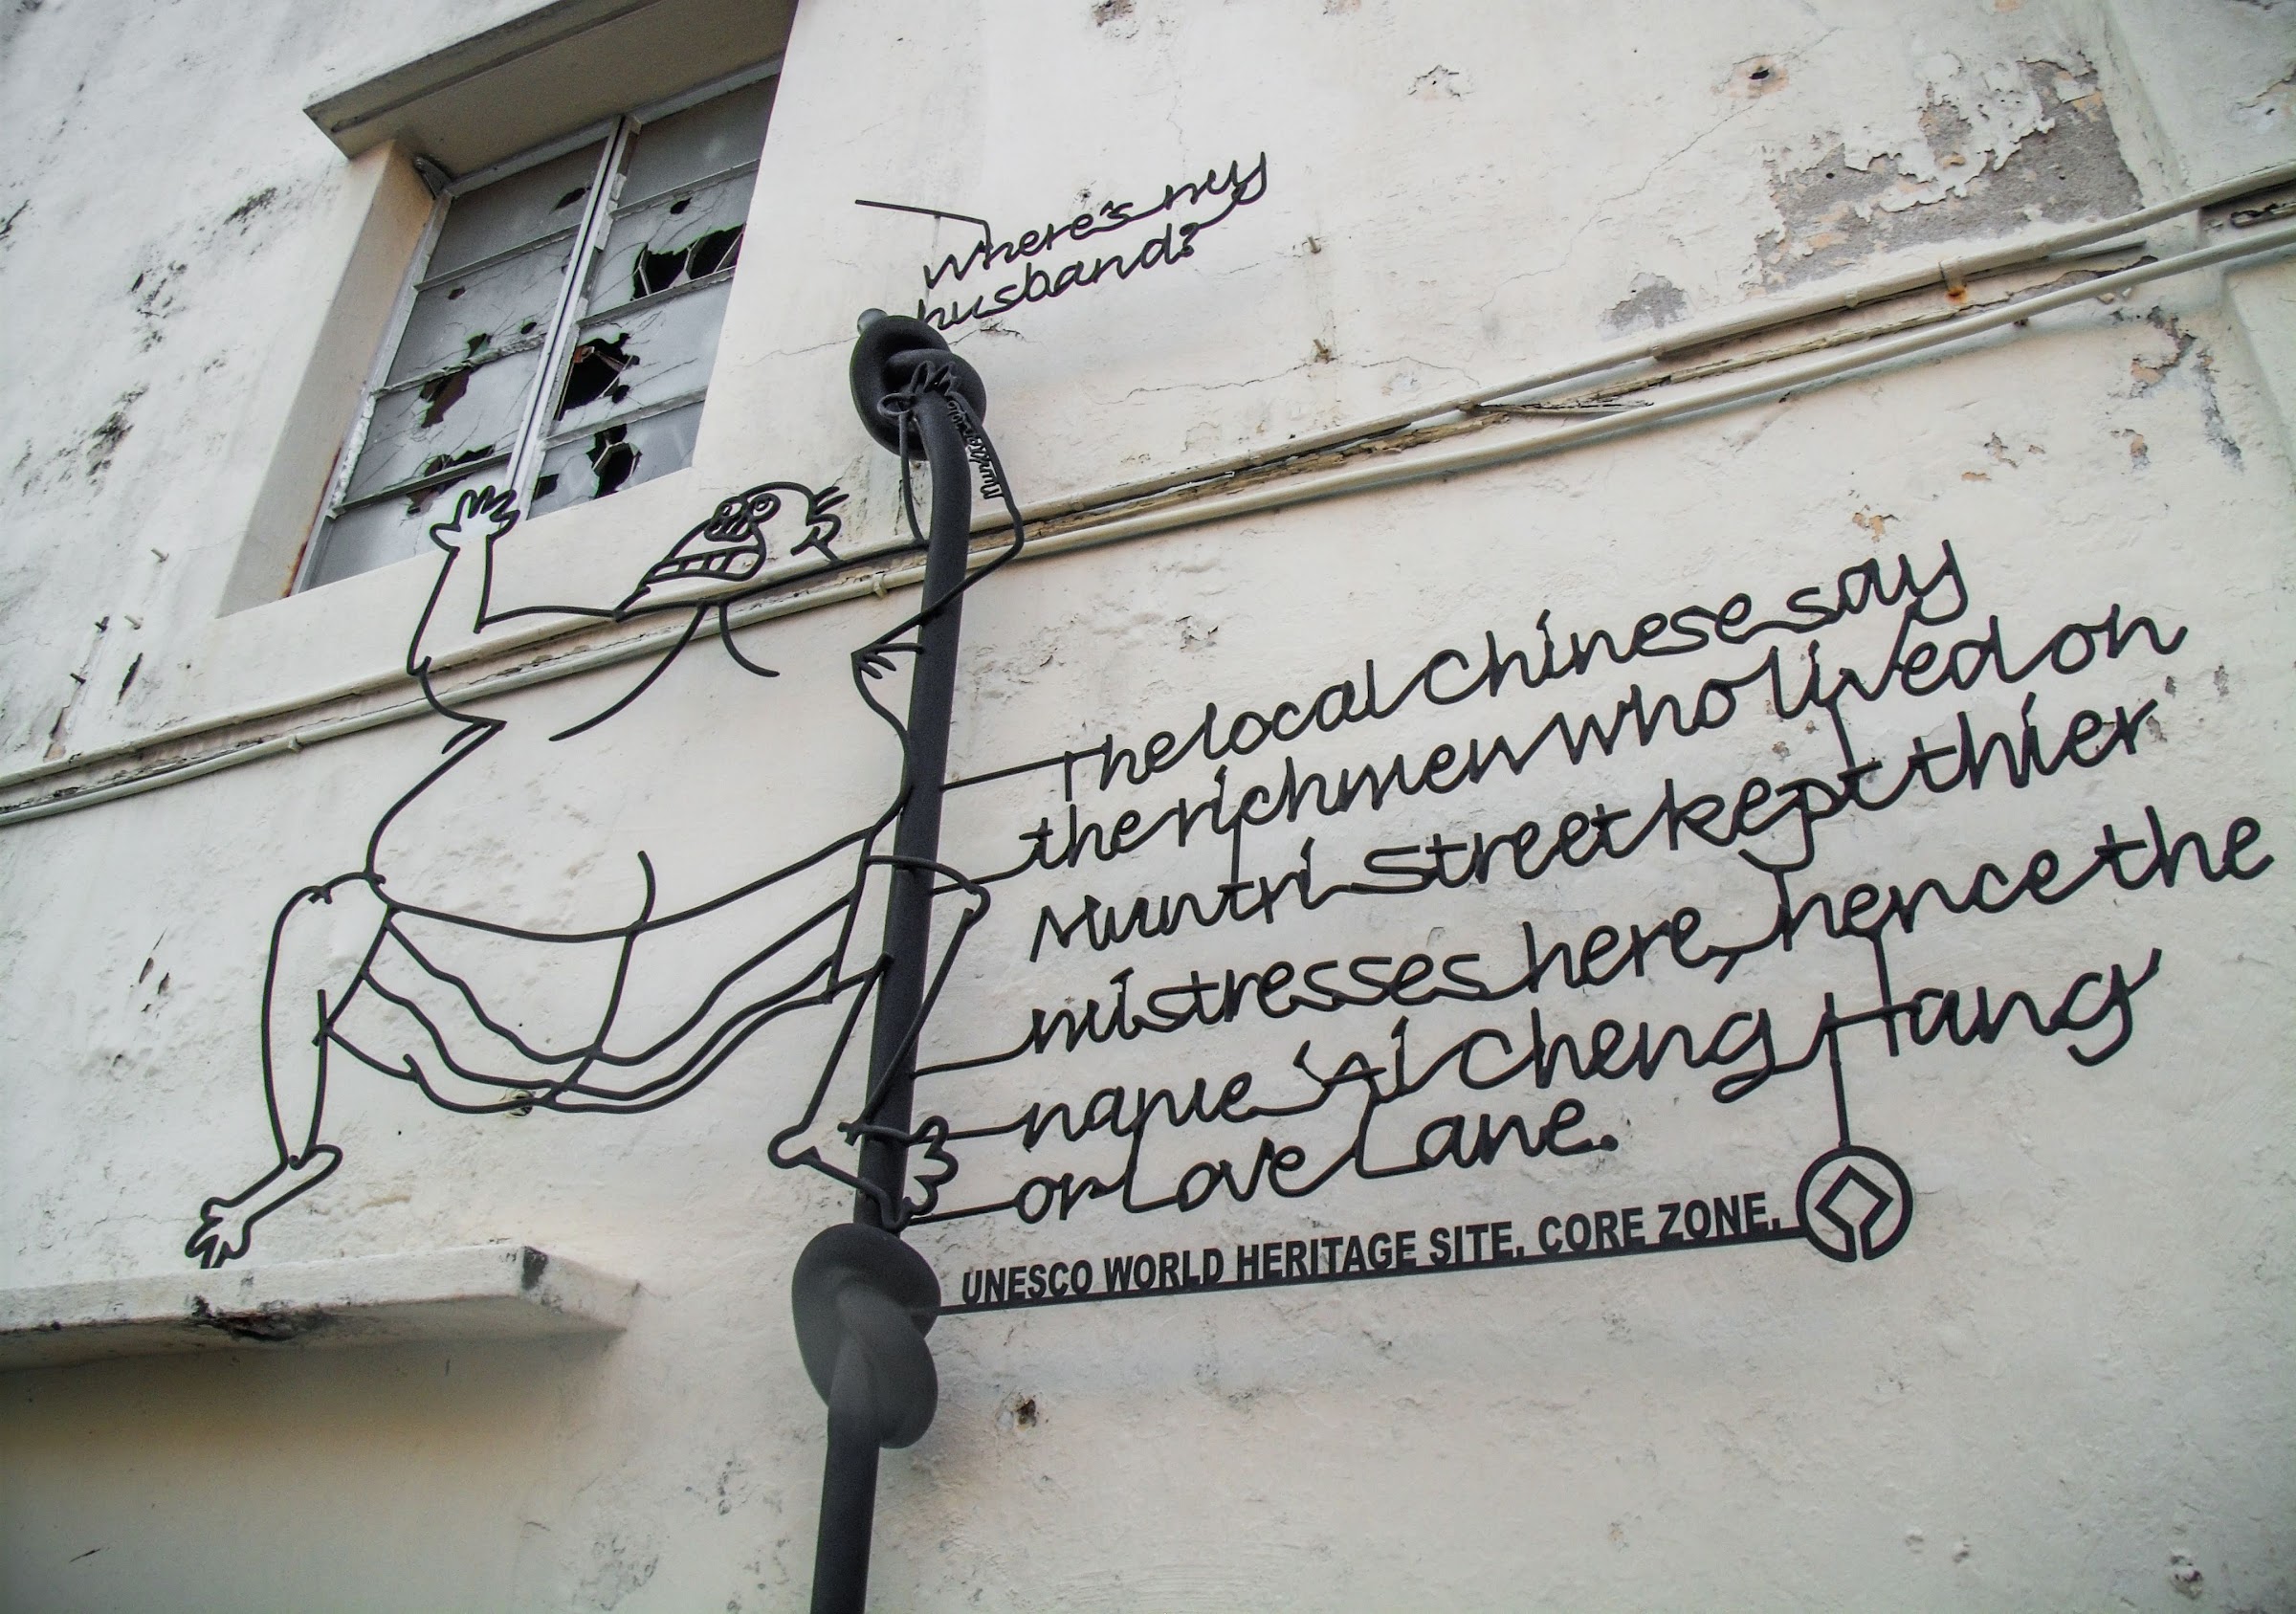 Where's my
husband?
The local Chinese say
the rich men who lived on
Muntri Street kept thier
mistresses here, hence the
name 'Ai Cheng Hang
or Love Lane.
UNESCO WORLD HERITAGE SITE. CORE ZONE.